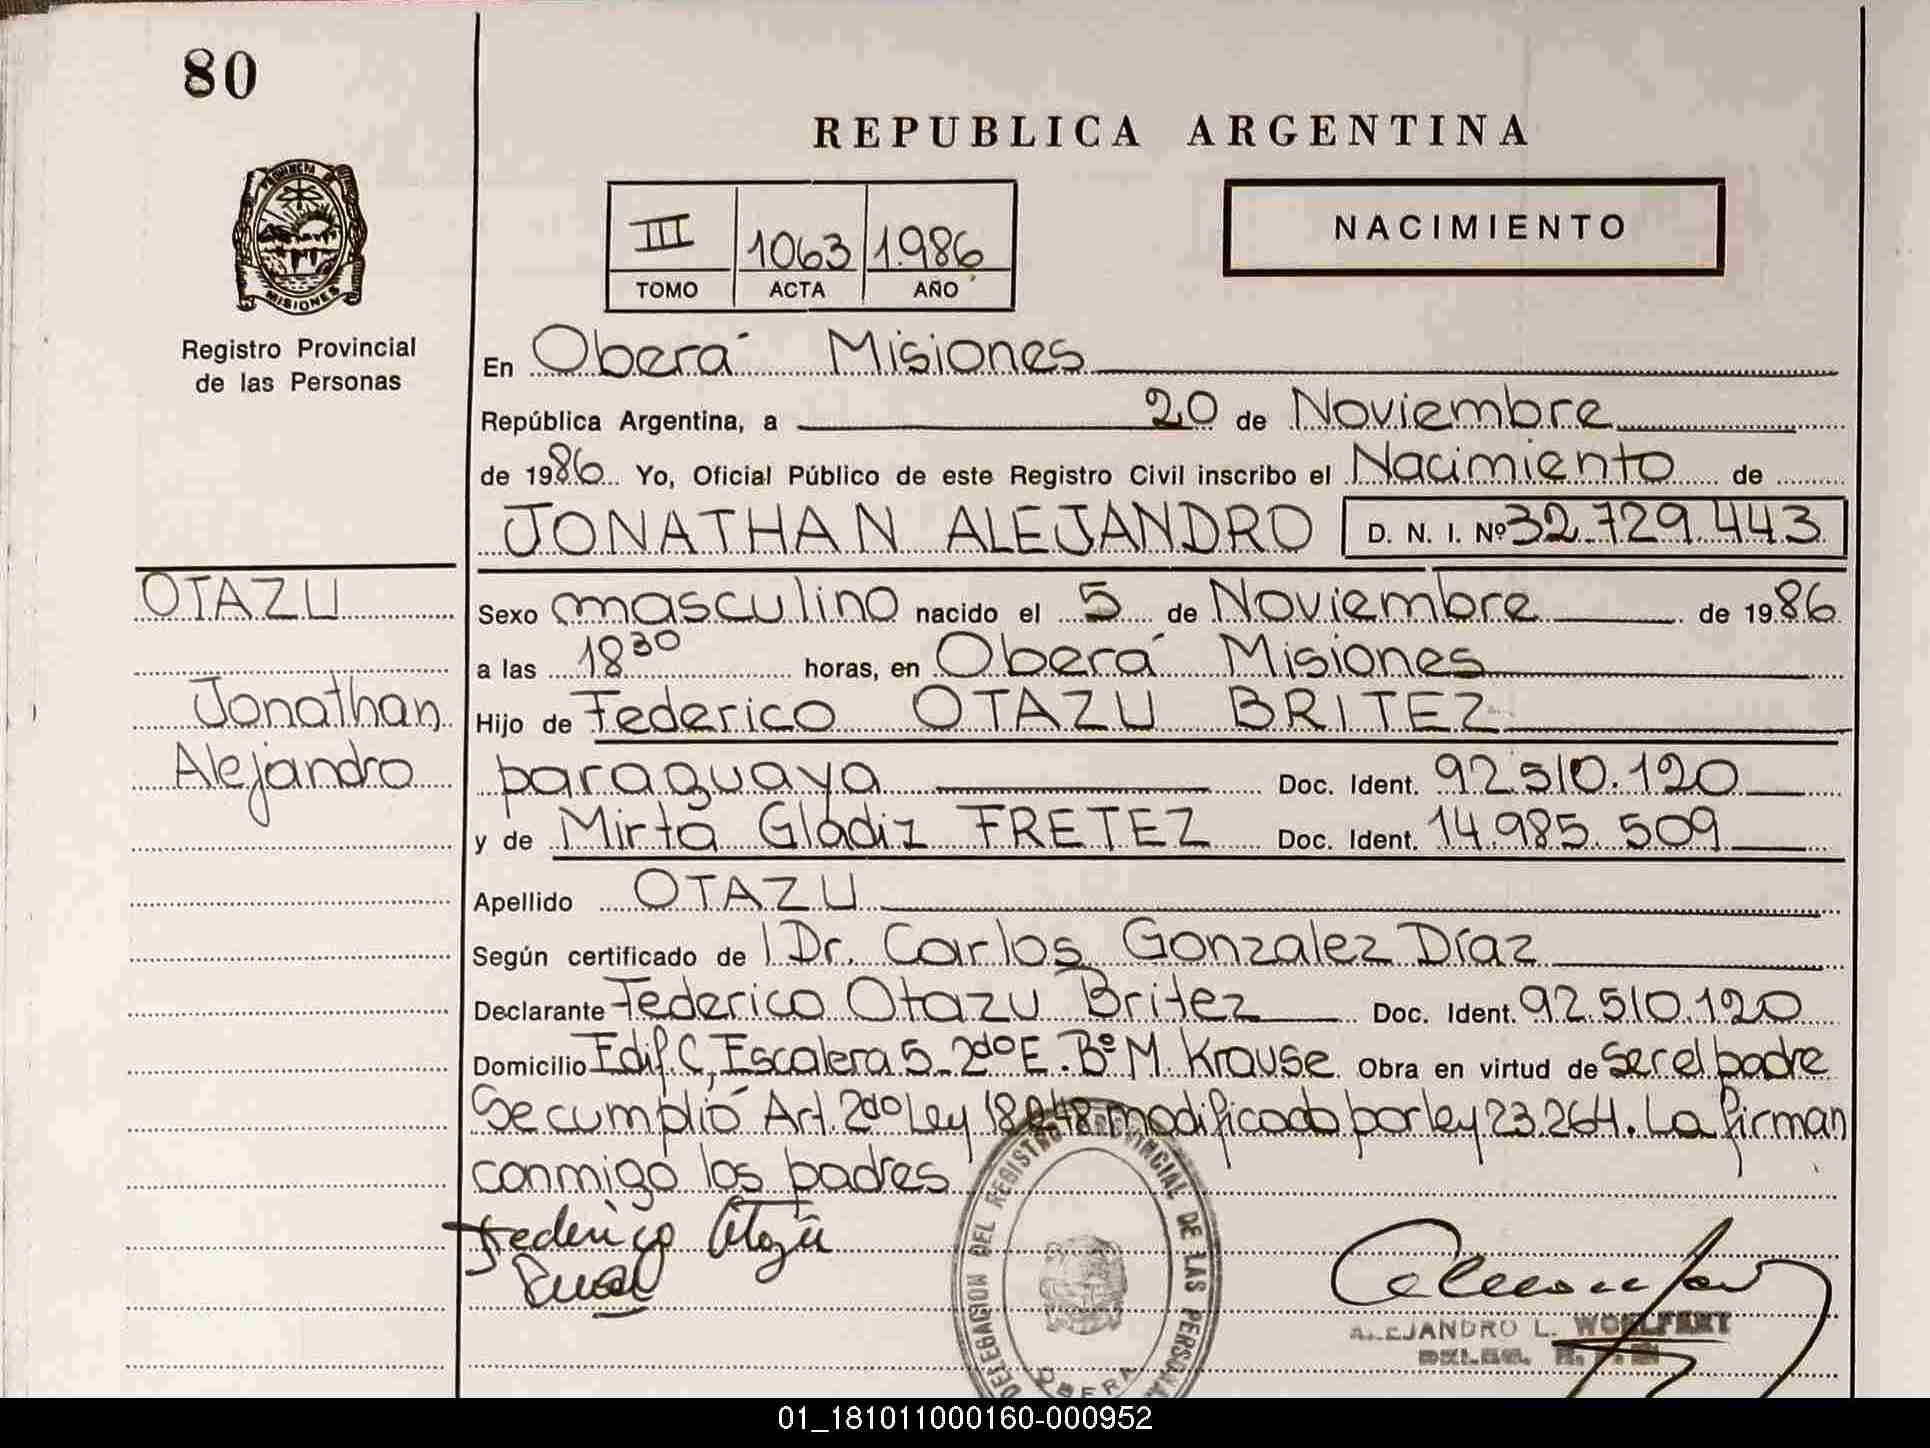 80
REPUBLICA ARGENTINA
PROVINCIA DE
MISIONES
Registro Provincial
de las Personas
III 1063 1.986
TOMO ACTA AÑO
NACIMIENTO
En Oberá Misiones
República Argentina, a 20 de Noviembre
de 1986 Yo, Oficial Público de este Registro Civil inscribo el Nacimiento de
JONATHAN ALEJANDRO D. N. I. Nº 32.729.443
OTAZU
Jonathan
Alejandro
Sexo masculino nacido el 5 de Noviembre de 1986
a las 18 30 horas, en Oberá Misiones
Hijo de Federico OTAZU BRITEZ
paraguaya Doc. Ident. 92.510.120
y de Mirta Gladiz FRETEZ Doc. Ident. 14.985.509
Apellido OTAZU
Según certificado de Dr. Carlos Gonzalez Díaz
Declarante Federico Otazu Britez Doc. Ident. 92.510.120
Domicilio Edif. C, Escalera 5-2do E. Bº M. Krause Obra en virtud de ser el padre
Se cumplió Art. 2do Ley 18248 modificado por ley 23.264. La firman
conmigo los padres
Federico Otazu
DELEGACION DEL REGISTRO PROVINCIAL DE LAS
OBERA
ALEJANDRO L. WOELFERT
01_181011000160-000952